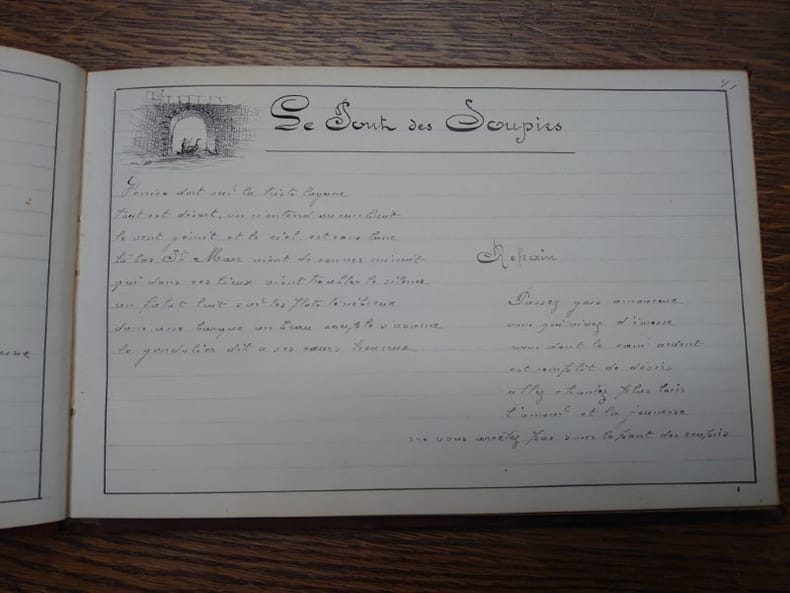 Le Pont des Soupirs
Venise dort sur la triste lagune
tout est désert, on n'entend aucun bruit
le vent gémit et le ciel est sans lune
là bas St Marc vient de sonner minuit
qui dans ces lieux vient troubler le silence
un falot luit sur les flots ténébreux
dans une barque un beau couple s'avance
le gondolier dit a ses cœurs heureux
Refrain
Passez gais amoureux
vous qui vivez d'ivresse
vous dont le cœur ardent
est remplit de désirs
allez chantez plus loin
l'amour et la jeunesse
ne vous arrêtez pas sous le pont des soupirs